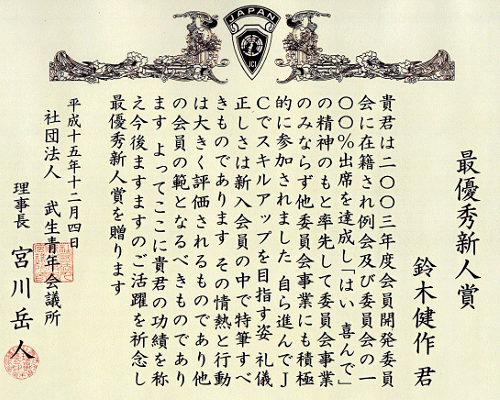 JAPAN
JCI
最優秀新人賞
鈴木健作 君
貴君は二〇〇三年度会員開発委員
会に在籍され例会及び委員会の一
〇〇%出席を達成し「はい 喜んで」
の精神のもと率先して委員会事業
のみならず他委員会事業にも積極
的に参加されました 自ら進んでJ
Cでスキルアップを目指す姿 礼儀
正しさは新入会員の中で特筆すべ
きものであります その情熱と行動
は大きく評価されるものであり他
の会員の範となるべきものであり
ます よってここに貴君の功績を称
え今後ますますのご活躍を祈念し
最優秀新人賞を贈ります
平成十五年十二月四日
社団法人 武生青年会議所
理事長 宮川岳人